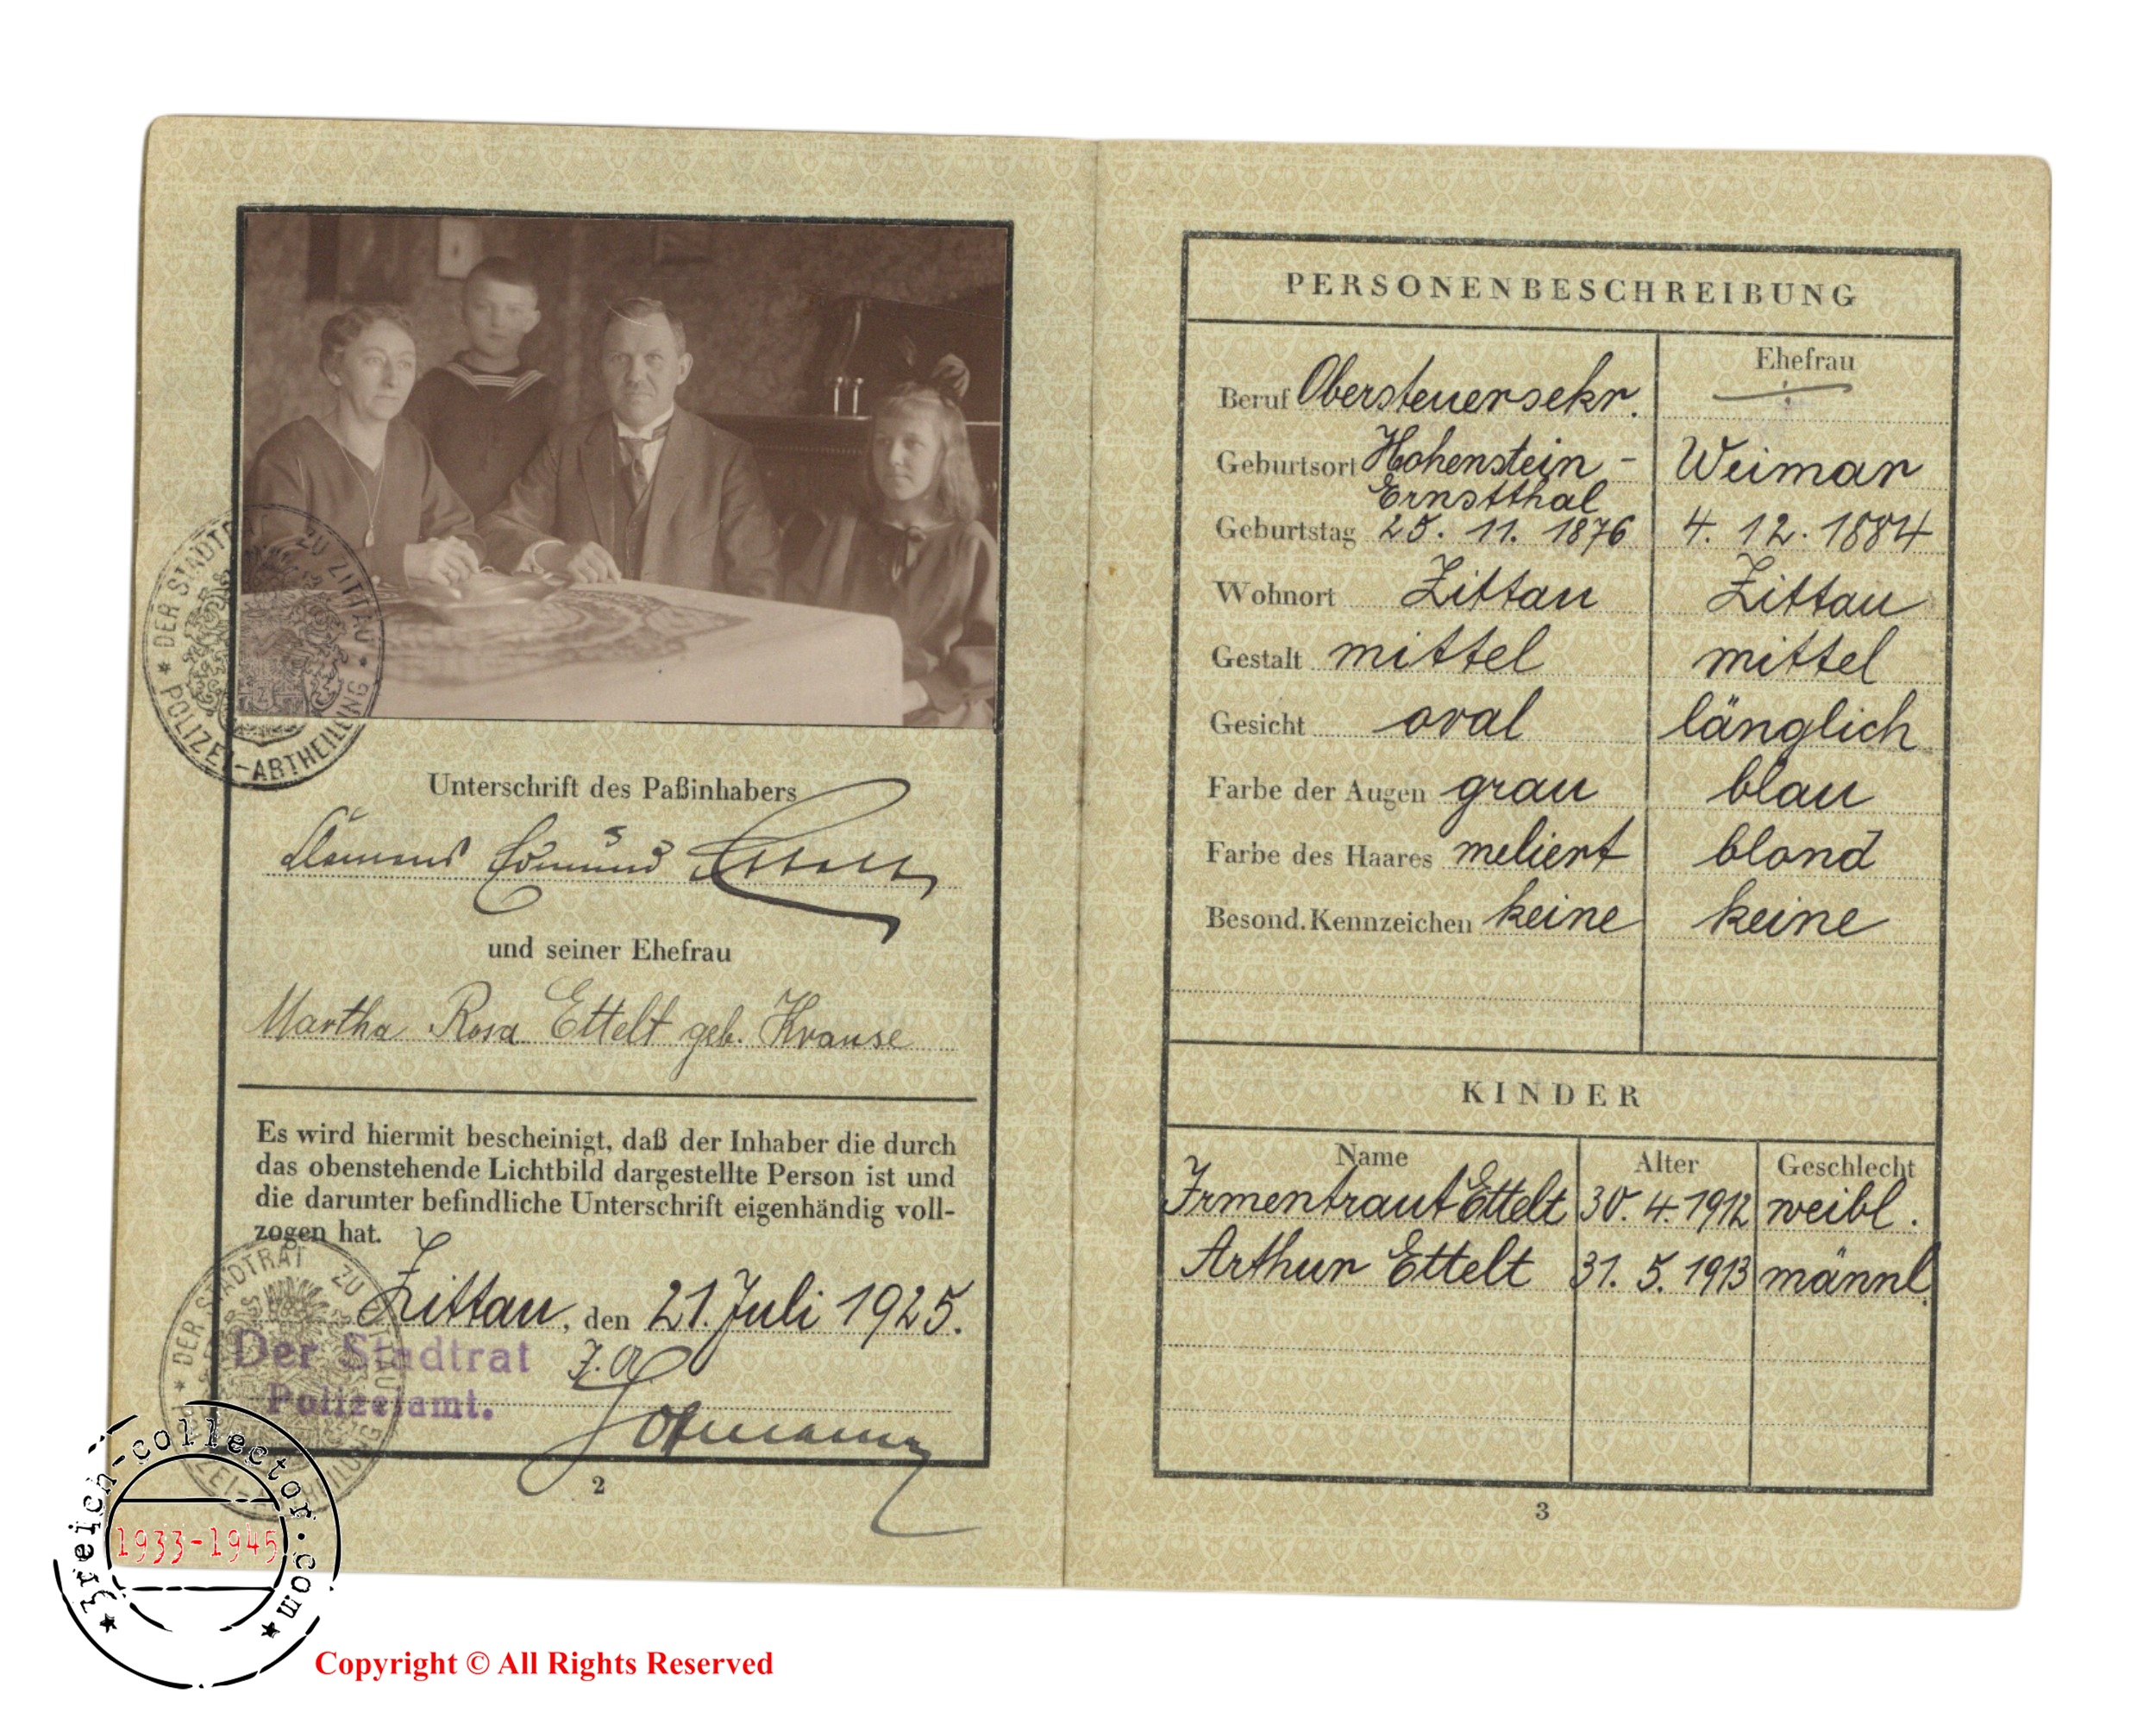 DER STADTRAT ZU ZITTAU
POLIZEI-ABTHEILUNG
Unterschrift des Paßinhabers
Clemens Edmund Ettelt
und seiner Ehefrau
Martha Rosa Ettelt geb. Krause
Es wird hiermit bescheinigt, daß der Inhaber die durch
das obenstehende Lichtbild dargestellte Person ist und
die darunter befindliche Unterschrift eigenhändig voll-
zogen hat.
Zittau, den 21. Juli 1925.
DER STADTRAT ZU
Der Stadtrat
Polizeiamt.
J. A.
Hofmann
2
PERSONENBESCHREIBUNG
Ehefrau
Beruf Obersteuersekr. -
Geburtsort Hohenstein- Weimar
Ernstthal
Geburtstag 25. 11. 1876 4. 12. 1884
Wohnort Zittau Zittau
Gestalt mittel mittel
Gesicht oval länglich
Farbe der Augen grau blau
Farbe des Haares meliert blond
Besond. Kennzeichen keine keine
KINDER
Name Alter Geschlecht
Irmentraut Ettelt 30. 4. 1912 weibl.
Arthur Ettelt 31. 5. 1913 männl.
3
3reich-collector.com
1933-1945
Copyright © All Rights Reserved